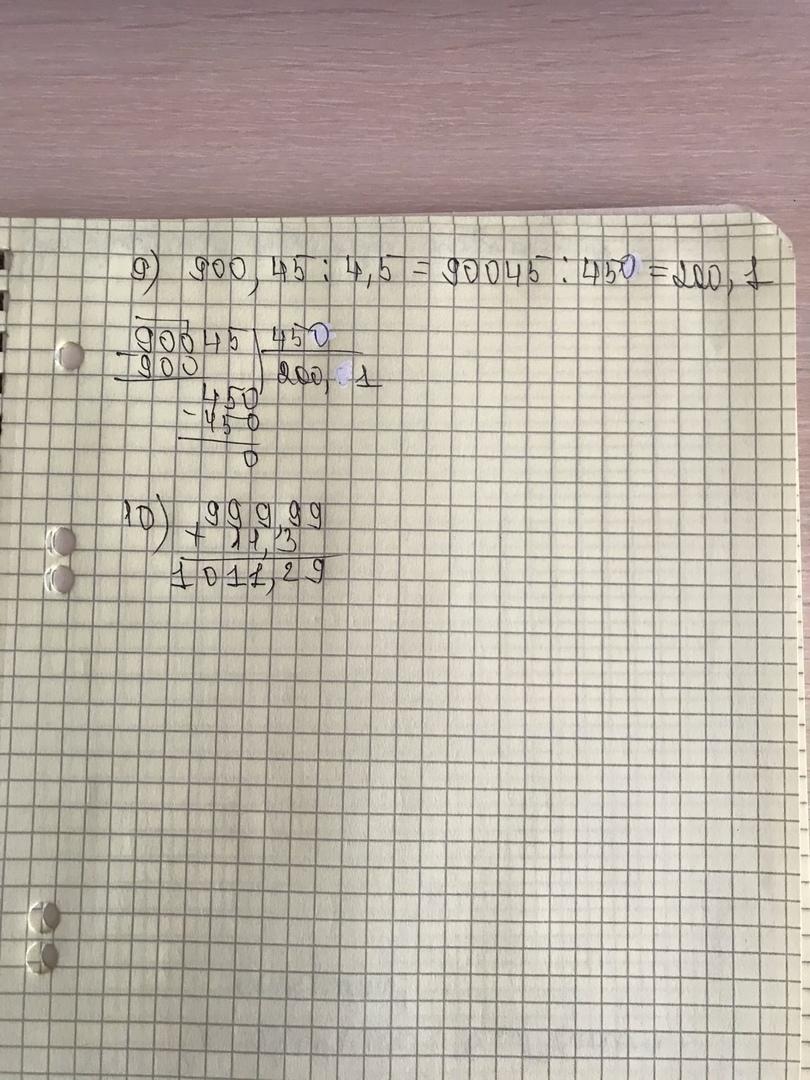 9) 900,45 : 4,5 = 90045 : 450 = 200,1
90045 450
900 200, 1
450
- 450
0
10) 999,99
+ 11,3
1011,29